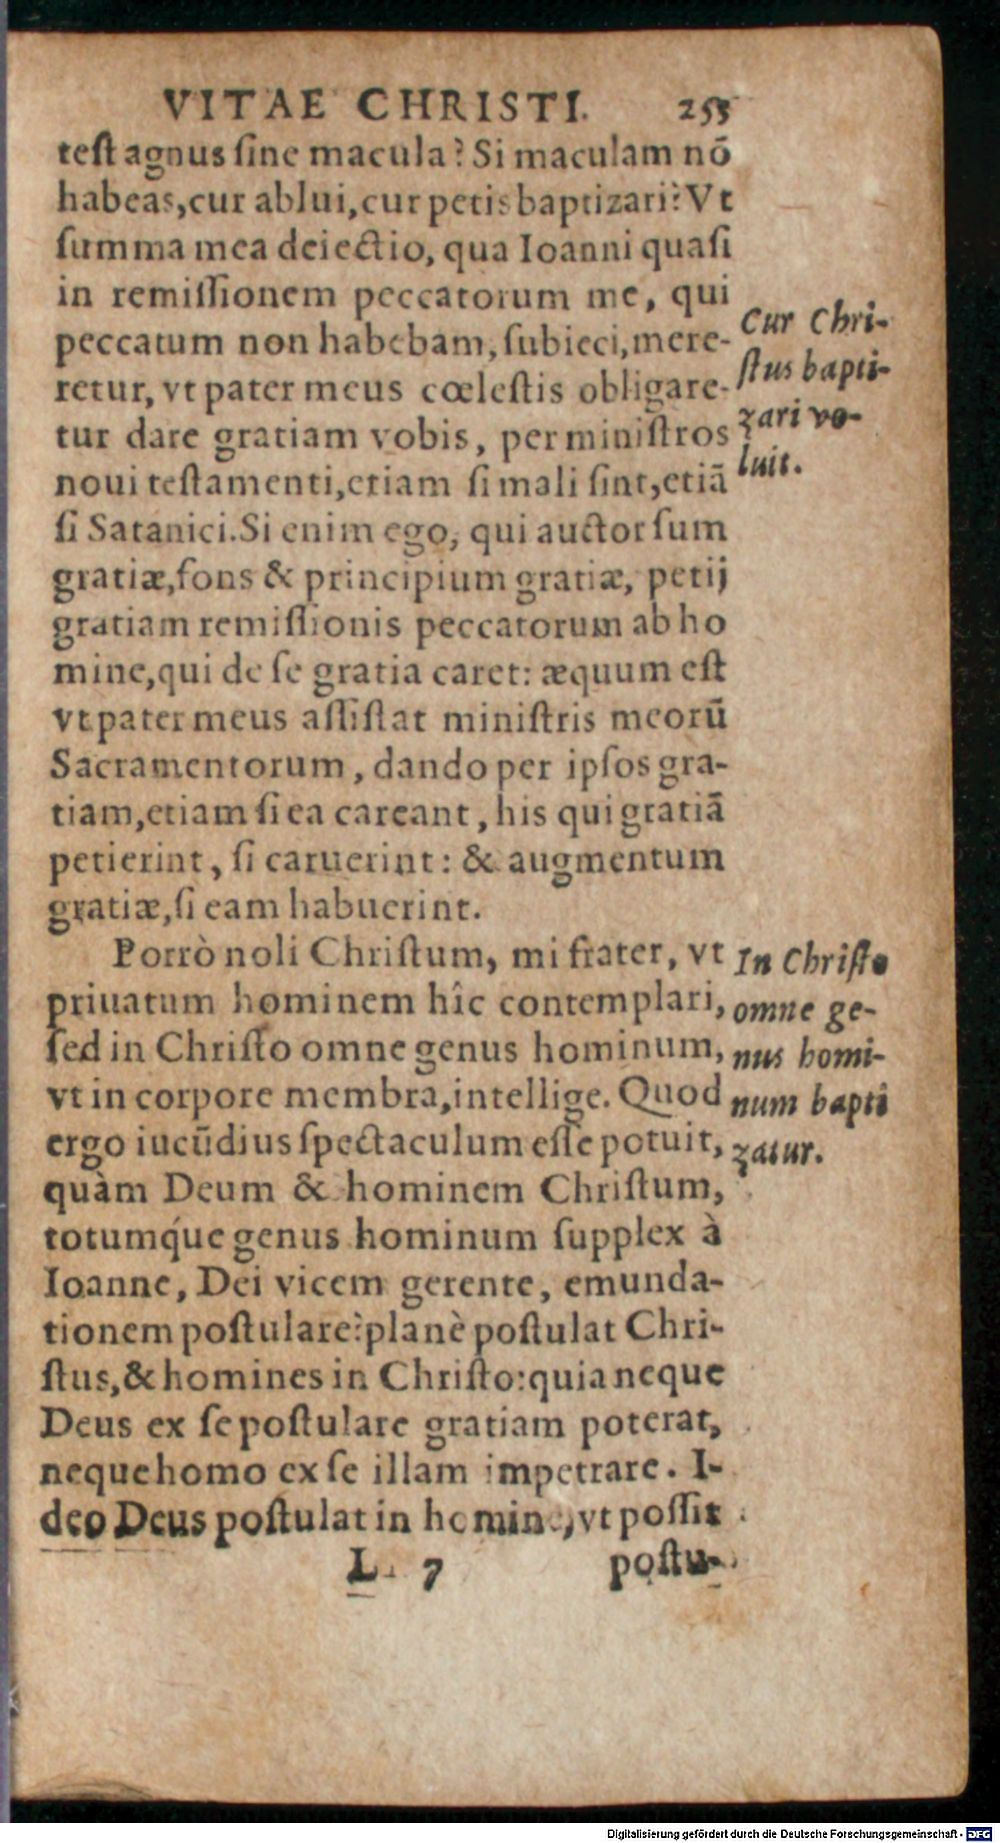 VITAE CHRISTI. 253
test agnus sine macula? Si maculam nō
habeas, cur ablui, cur petis baptizari? Vt
summa mea deiectio, qua Ioanni quasi
in remissionem peccatorum me, qui
peccatum non habebam, subieci, mere-
retur, vt pater meus cœlestis obligare-
tur dare gratiam vobis, per ministros
noui testamenti, etiam si mali sint, etiā
si Satanici. Si enim ego, qui auctor sum
gratiæ, fons & principium gratiæ, petij
gratiam remissionis peccatorum ab ho
mine, qui de se gratia caret: æquum est
vt pater meus assistat ministris meorū
Sacramentorum, dando per ipsos gra-
tiam, etiam si ea careant, his qui gratiā
petierint, si caruerint: & augmentum
gratiæ, si eam habuerint.
Cur Chri-
stus bapti-
zari vo-
luit.
Porrò noli Christum, mi frater, vt
priuatum hominem hîc contemplari,
sed in Christo omne genus hominum,
vt in corpore membra, intellige. Quod
ergo iucūdius spectaculum esse potuit,
quàm Deum & hominem Christum,
totumq́ue genus hominum supplex à
Ioanne, Dei vicem gerente, emunda-
tionem postulare? planè postulat Chri-
stus, & homines in Christo: quia neque
Deus ex se postulare gratiam poterat,
neque homo ex se illam impetrare. I-
deo Deus postulat in homine, vt possit
In Christo
omne ge-
nus homi-
num bapti
zatur.
L 7 postu-
Digitalisierung gefördert durch die Deutsche Forschungsgemeinschaft - DFG